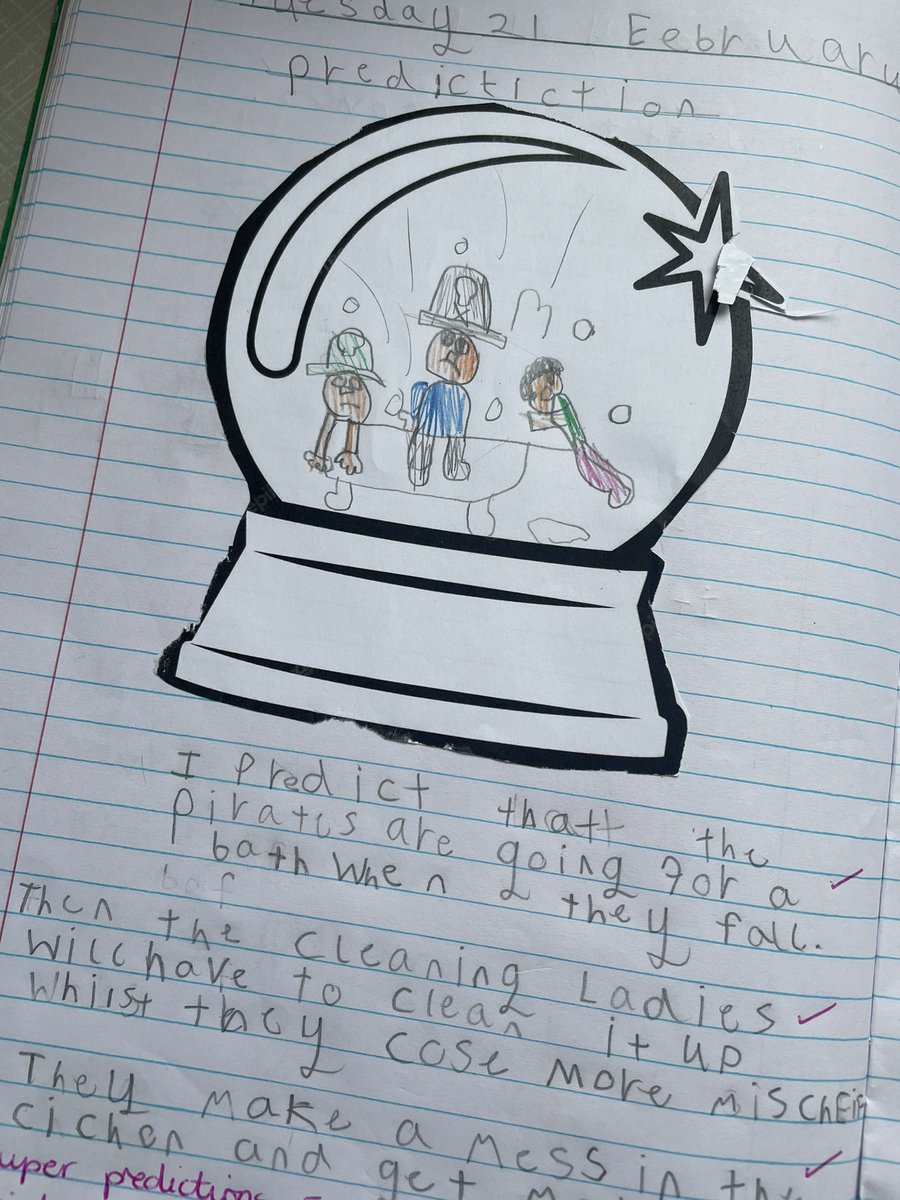 Tuesday 21 Eebruary
predictiction
I predict thatt the
pirates are going for a
bath When they fall.
Then the cleaning Ladies
Will have to clean it up
Whilst they cose more mischeif
They make a mess in the
cichen and get
super predictions